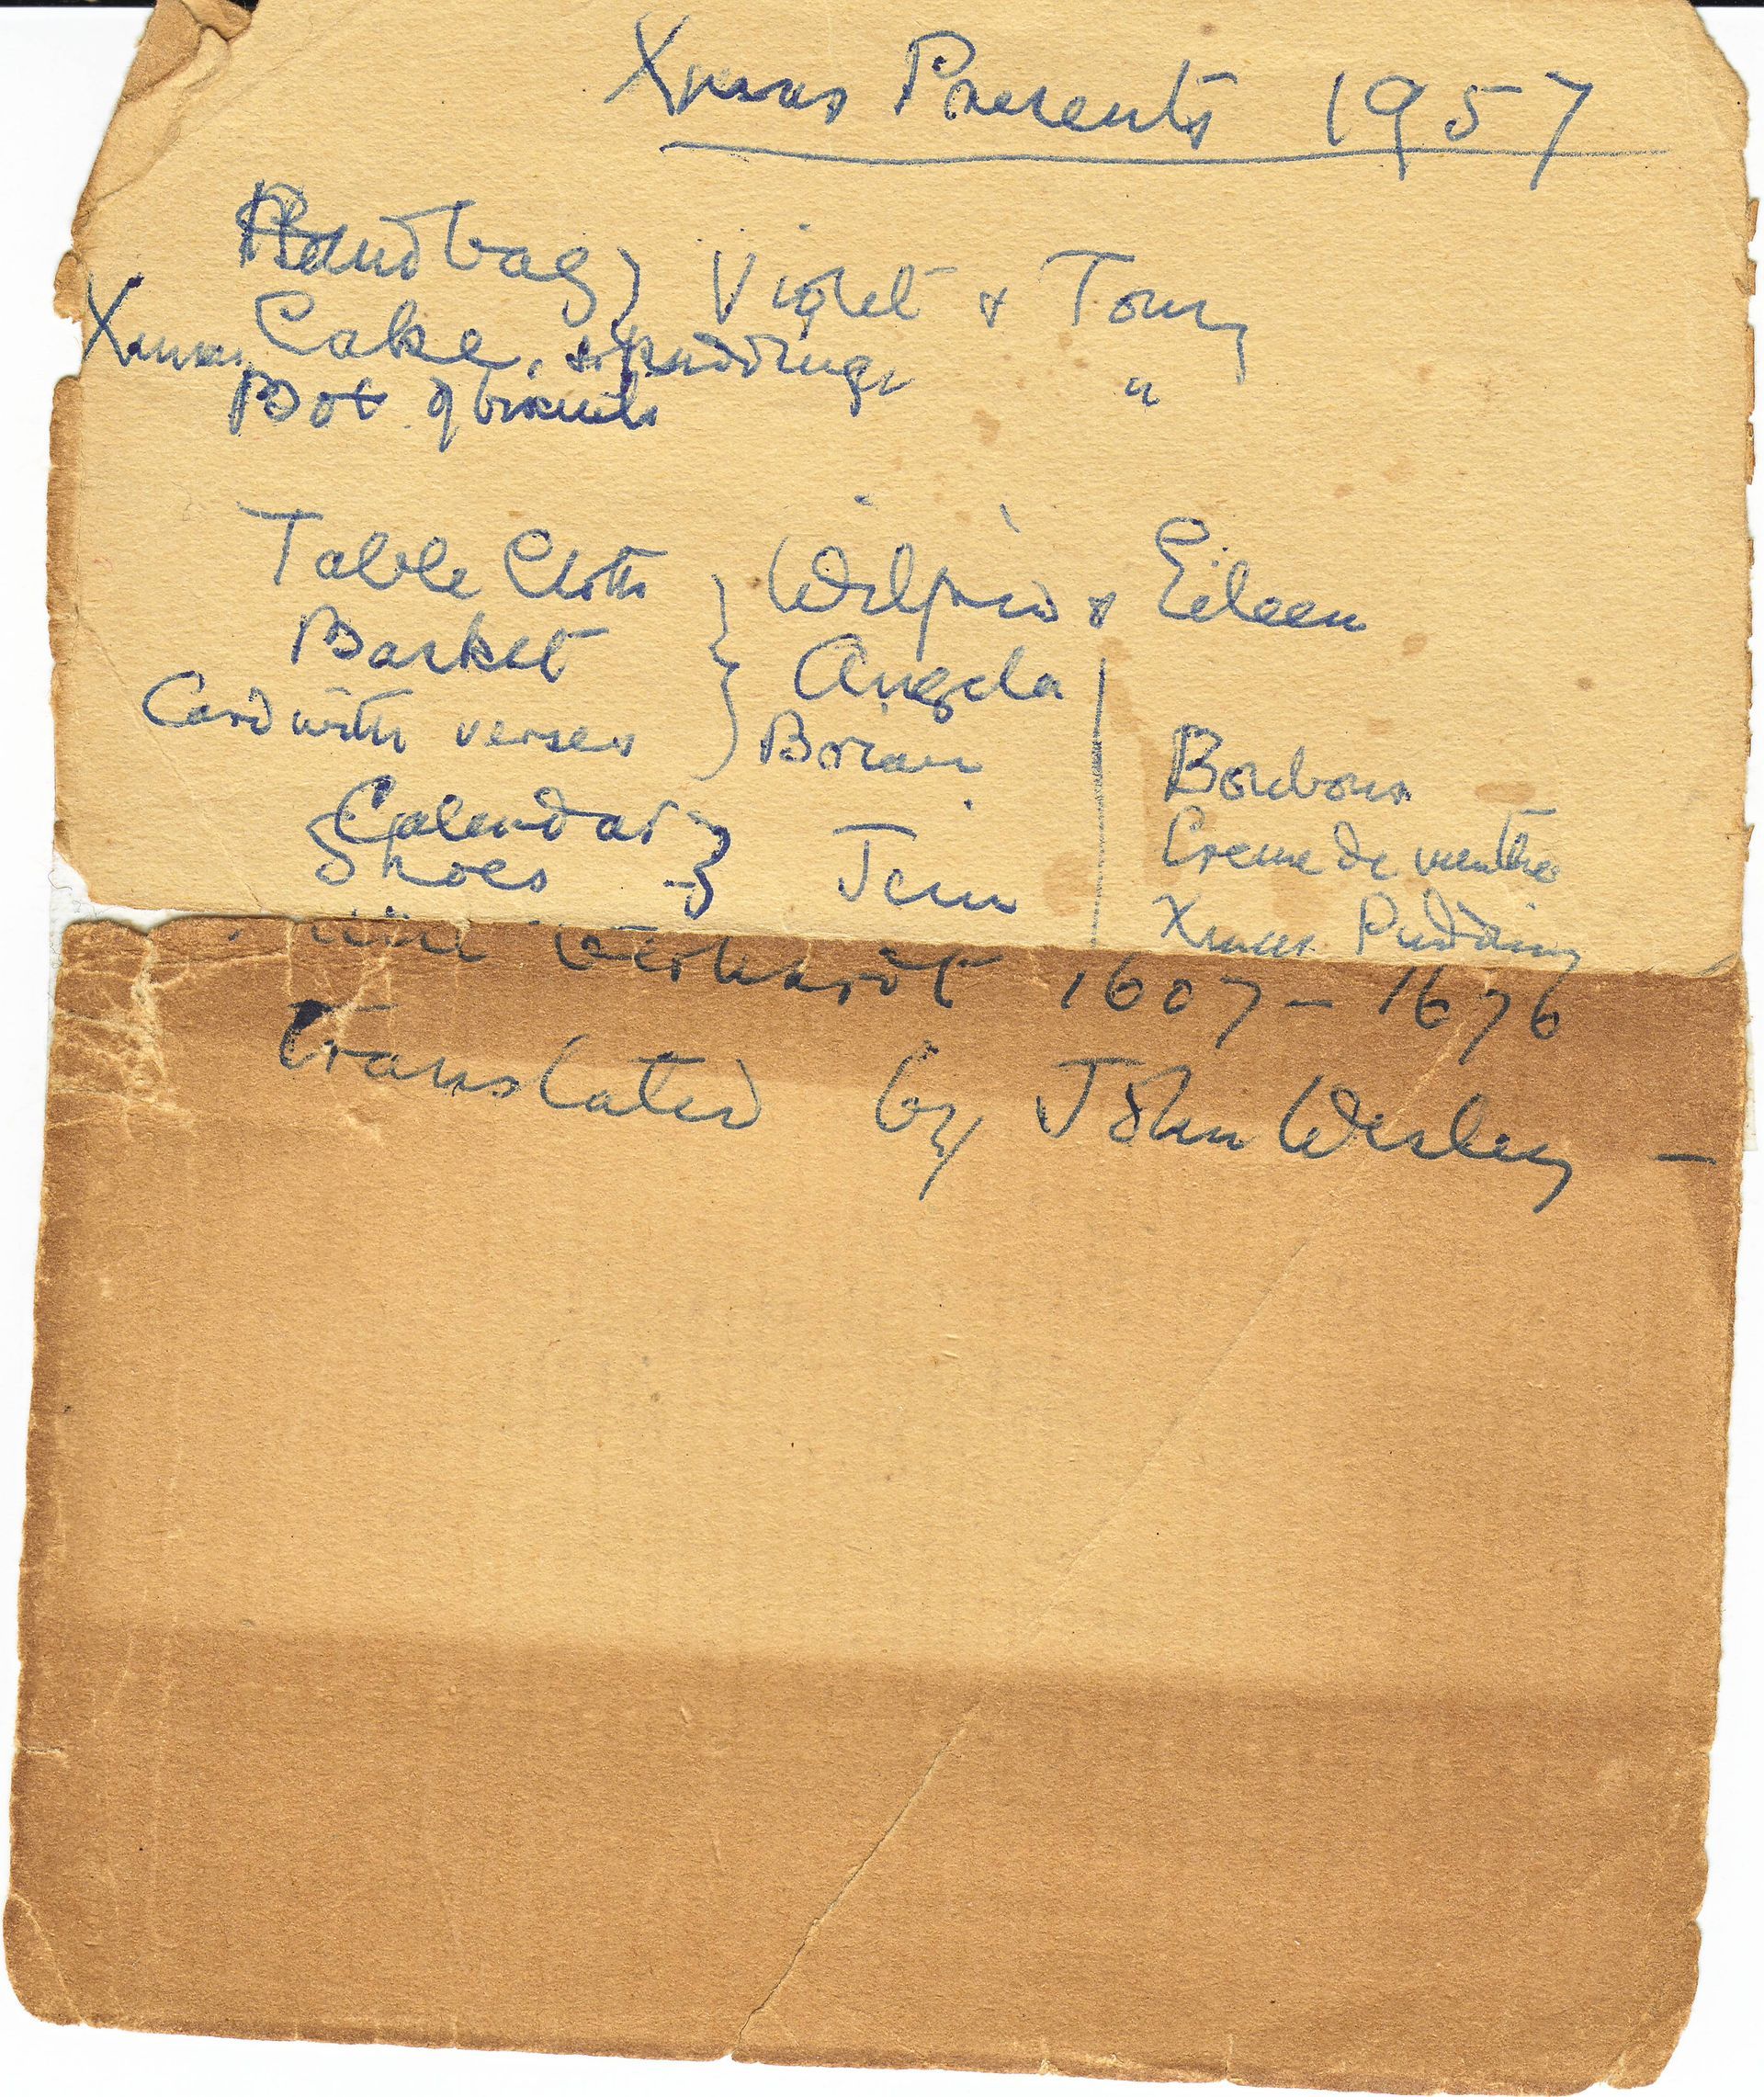 Xmas Presents 1957
Handbag } Violet & Tony
Xmas Cake, & puddings "
Box of biscuits
Table Cloth } Wilfrid & Eileen
Basket } Angela
Card with verses } Brian
Bonbons
Calendar }
Creme de menthe
Shoes } Jim
Xmas Pudding
Gerhardt 1607 - 1676
Translated by John Wesley -